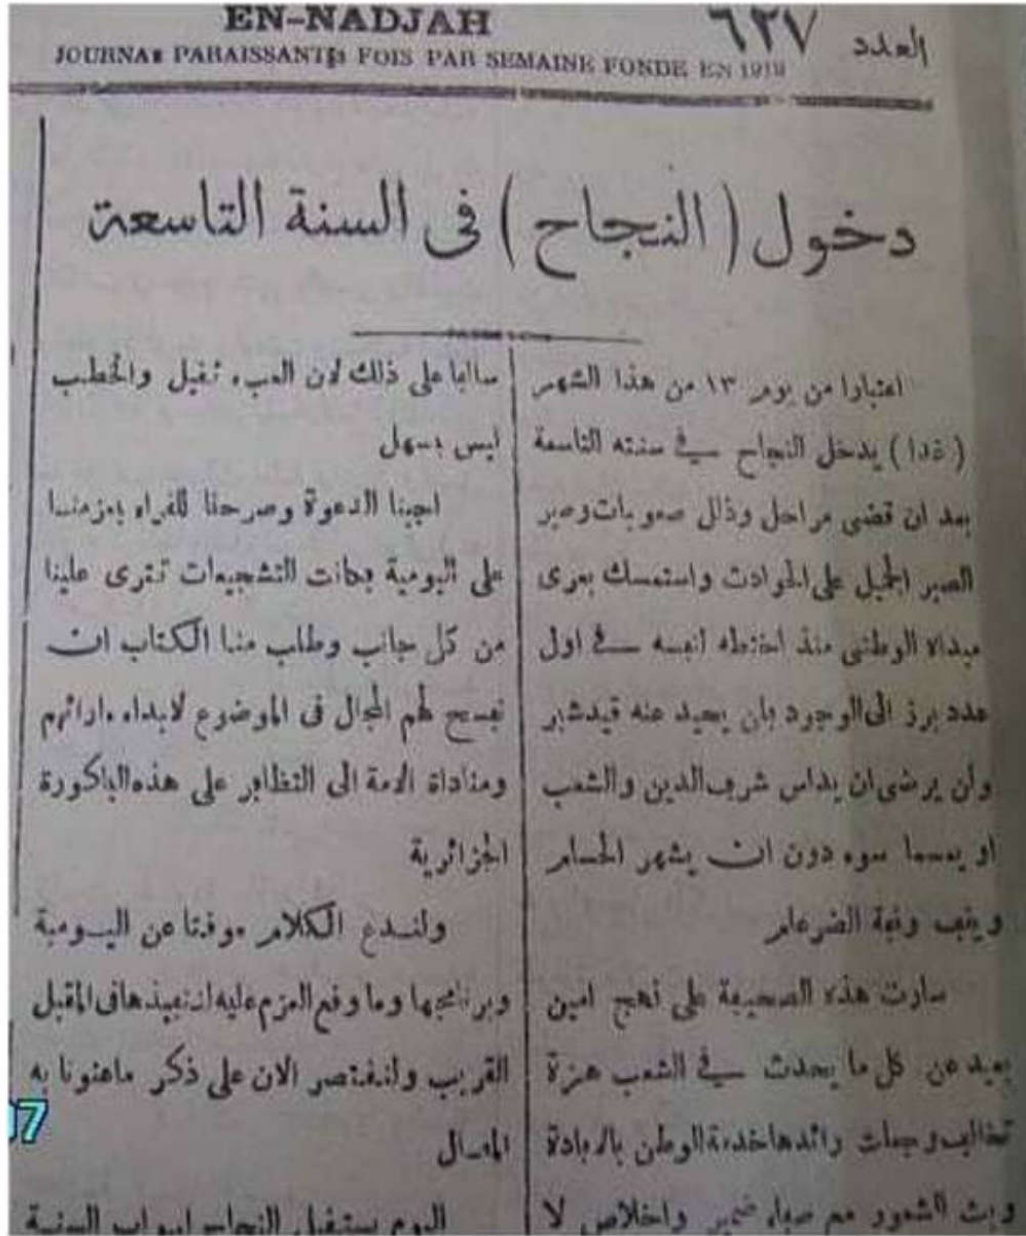 EN-NADJAH
العدد ٦٢٧
JOURNAL PARAISSANT 3 FOIS PAR SEMAINE FONDE EN 1919
دخول (النجاح) في السنة التاسعة
اعتبارا من يوم ١٣ من هذا الشهر
(غدا) يدخل النجاح في سنته التاسعة
بعد ان قضى مراحل وذلل صعوبات وصبر
الصبر الجميل على الحوادث واستمسك بعرى
مبداه الوطني منذ اختطه لنفسه في اول
عدد برز الى الوجود بان يحيد عنه قيد شبر
ولن يرضى ان يداس شرف الدين والشعب
او يمسما سوء دون ان يشهر الحسام
ويقف وقفة الضرغام
سارت هذه الصحيفة على نهج امين
بعيد عن كل ما يحدث في الشعب هزة
تخالف وجهات رائدها خدمة الوطن
وبث الشعور مع صفاء ضمير واخلاص لا
سالبا على ذلك لان العبء ثقيل والخطب
ليس بسهل
اجبنا الدعوة وصرحنا للقراء بعزمنا
على اليومية فجاءت التشجيعات تترى علينا
من كل جانب وطلب منا الكتاب ان
نفسح لهم المجال في الموضوع لابداء ءارائهم
ومناداة الامة الى التظافر على هذه الباكورة
الجزائرية
ولندع الكلام موقتا عن اليومية
وبرنامجها وما وقع العزم عليه لتنفيذها في المقبل
القريب ولنقتصر الان على ذكر ما عنونا به
المقال
اليوم يستقبل النجاح ابواب السنة
07